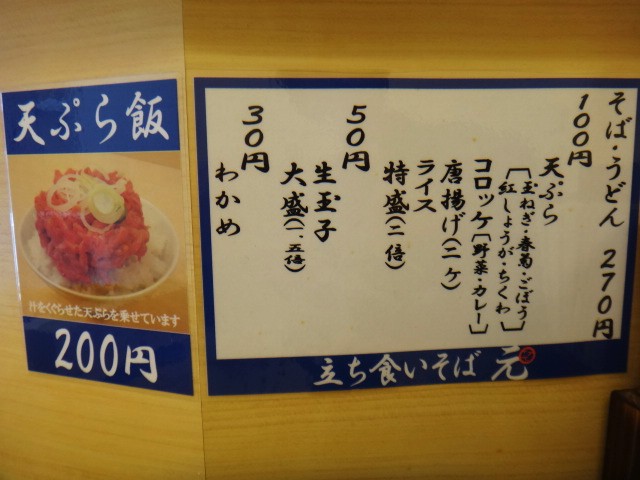 天ぷら飯
汁をくぐらせた天ぷらを乗せています
200円
そば・うどん 270円
100円
天ぷら
〔玉ねぎ・春菊・ごぼう
紅しょうが・ちくわ〕
コロッケ〔野菜・カレー〕
唐揚げ(二ケ)
ライス
特盛(二倍)
50円
生玉子
大盛(一.五倍)
30円
わかめ
立ち食いそば 元